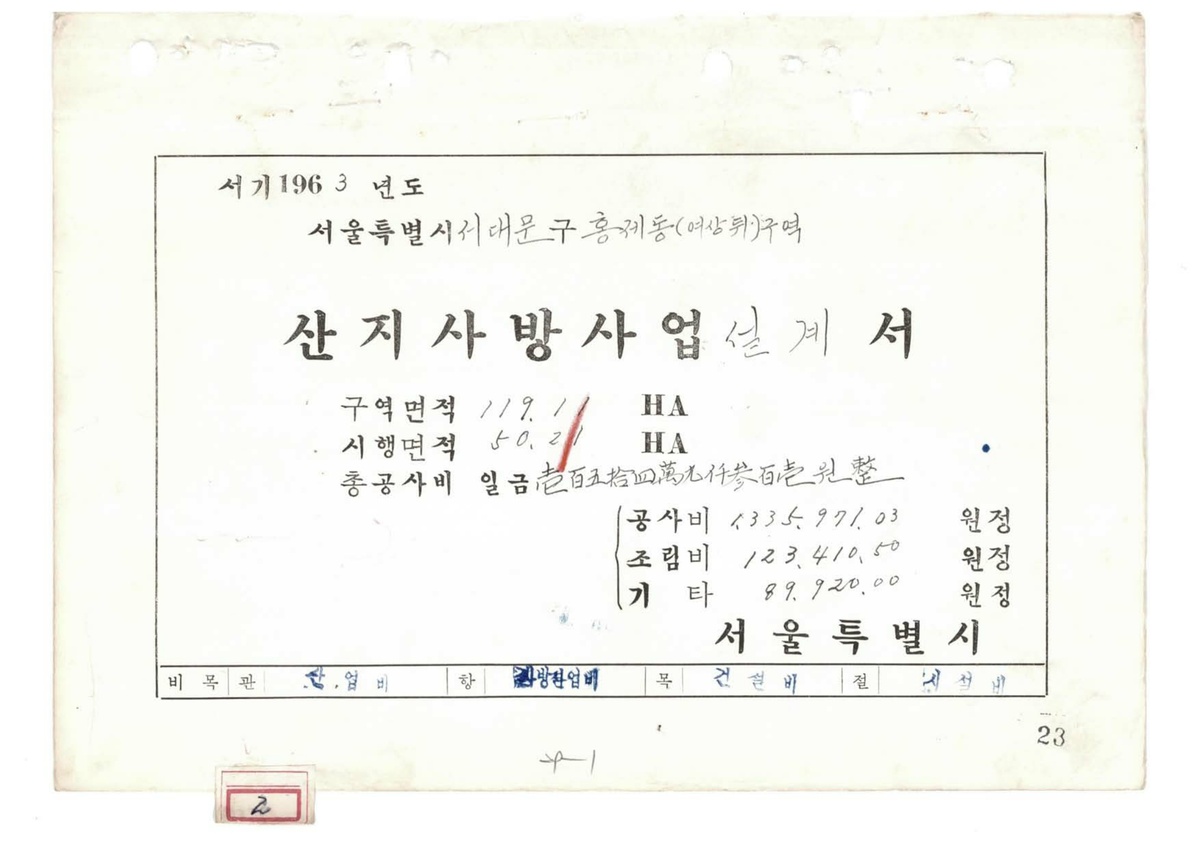 서기 1963 년도
서울특별시 서대문 구 홍제동(여상뒤)구역
산지사방사업 설계 서
구역면적 119.11 HA
시행면적 50.21 HA
총공사비 일금 壱百五拾四萬九仟参百壱원整
공사비 1,335,971.03 원정
조림비 123,410.50 원정
기타 89,920.00 원정
서울특별시
비목 관 산업비 항 사방사업비 목 건설비 절 시설비
23
2